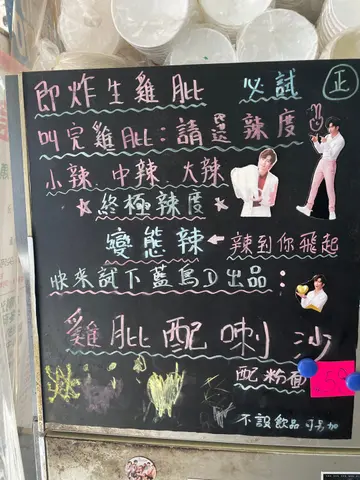 即炸生雞髀 必試 正
叫完雞髀：請選辣度
小辣 中辣 大辣
★終極辣度★
變態辣←辣到你飛起
快來試下藍鳥D出品：
雞髀配喇沙
配粉面
不設飲品